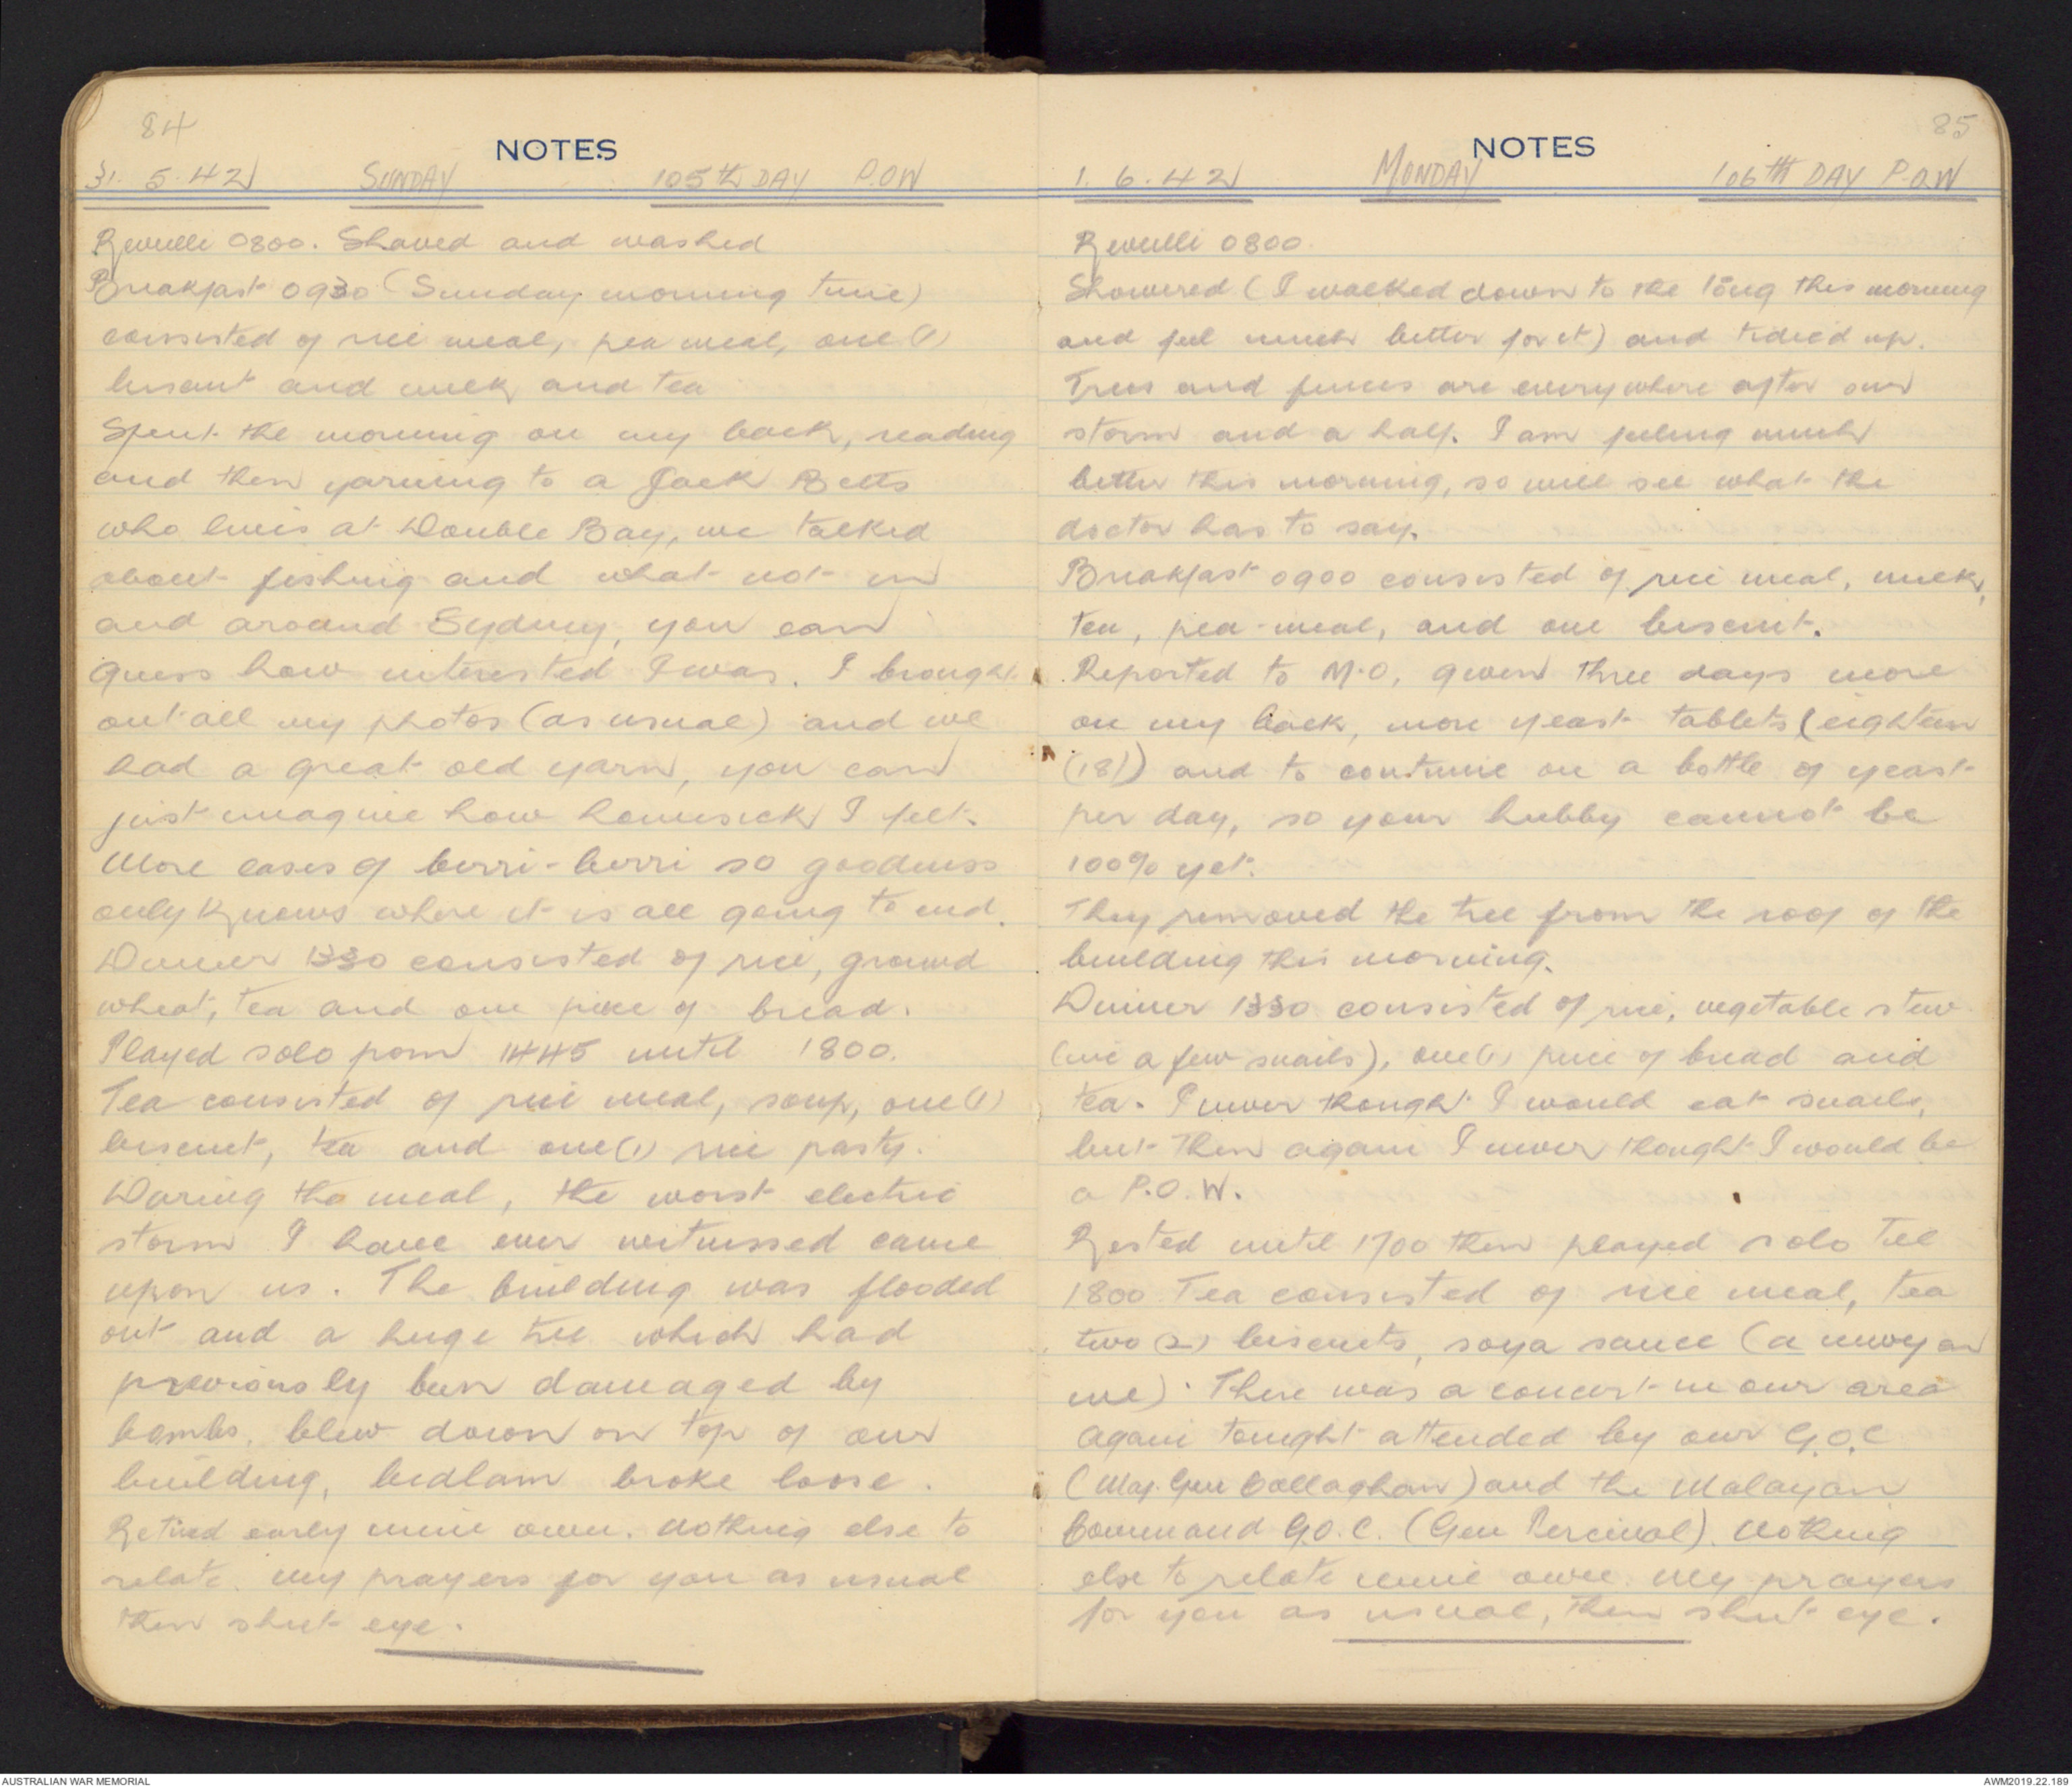 84
NOTES
31. 5. 42 SUNDAY 105th DAY P.O.W
Reveille 0800. Shaved and washed
Breakfast 0930 (Sunday morning time)
consisted of rice meal, pea meal, one (1)
biscuit and milk and tea
Spent the morning on my back, reading
and then yarning to a Jack Betts
who lives at Double Bay, we talked
about fishing and what not in
and around Sydney, you can
guess how interested I was. I brought
out all my photos (as usual) and we
had a great old yarn, you can
just imagine how homesick I felt.
More cases of berri-berri so goodness
only knows where it is all going to end.
Dinner 1330 consisted of rice, ground
wheat, tea and one piece of bread.
Played solo from 1445 until 1800.
Tea consisted of rice meal, soup, one (1)
biscuit, tea and one (1) rice pasty.
During the meal, the worst electric
storm I have ever witnessed came
upon us. The building was flooded
out and a huge tree which had
previously been damaged by
bombs, blew down on top of our
building, bedlam broke loose.
Retired early mine own. Nothing else to
relate. My prayers for you as usual
then shut eye.
85
NOTES
1. 6. 42 MONDAY 106TH DAY P.O.W
Reveilli 0800.
Showered (I walked down to the long this morning
and feel much better for it) and tidied up.
Trees and fences are everywhere after our
storm and a half. I am feeling much
better this morning, so will see what the
doctor has to say.
Breakfast 0900 consisted of rice meal, milk,
tea, pea-meal, and one biscuit.
Reported to M.O, given three days more
on my back, more yeast tablets (eighteen
(18)) and to continue on a bottle of yeast
per day, so your hubby cannot be
100% yet.
They removed the tree from the roof of the
building this morning.
Dinner 1330 consisted of rice, vegetable stew
(inc a few snails), one (1) piece of bread and
tea. I never thought I would eat snails,
but then again I never thought I would be
a P.O.W.
Rested until 1700 then played solo till
1800 Tea consisted of rice meal, tea
two (2) biscuits, soya sauce (a new one on
me). There was a concert in our area
again tonight attended by our G.O.C
(Maj. Gen Callaghan) and the Malayan
Command G.O.C. (Gen Percival). Nothing
else to relate mine own. My prayers
for you as usual, then shut eye.
AUSTRALIAN WAR MEMORIAL
AWM2019.22.189